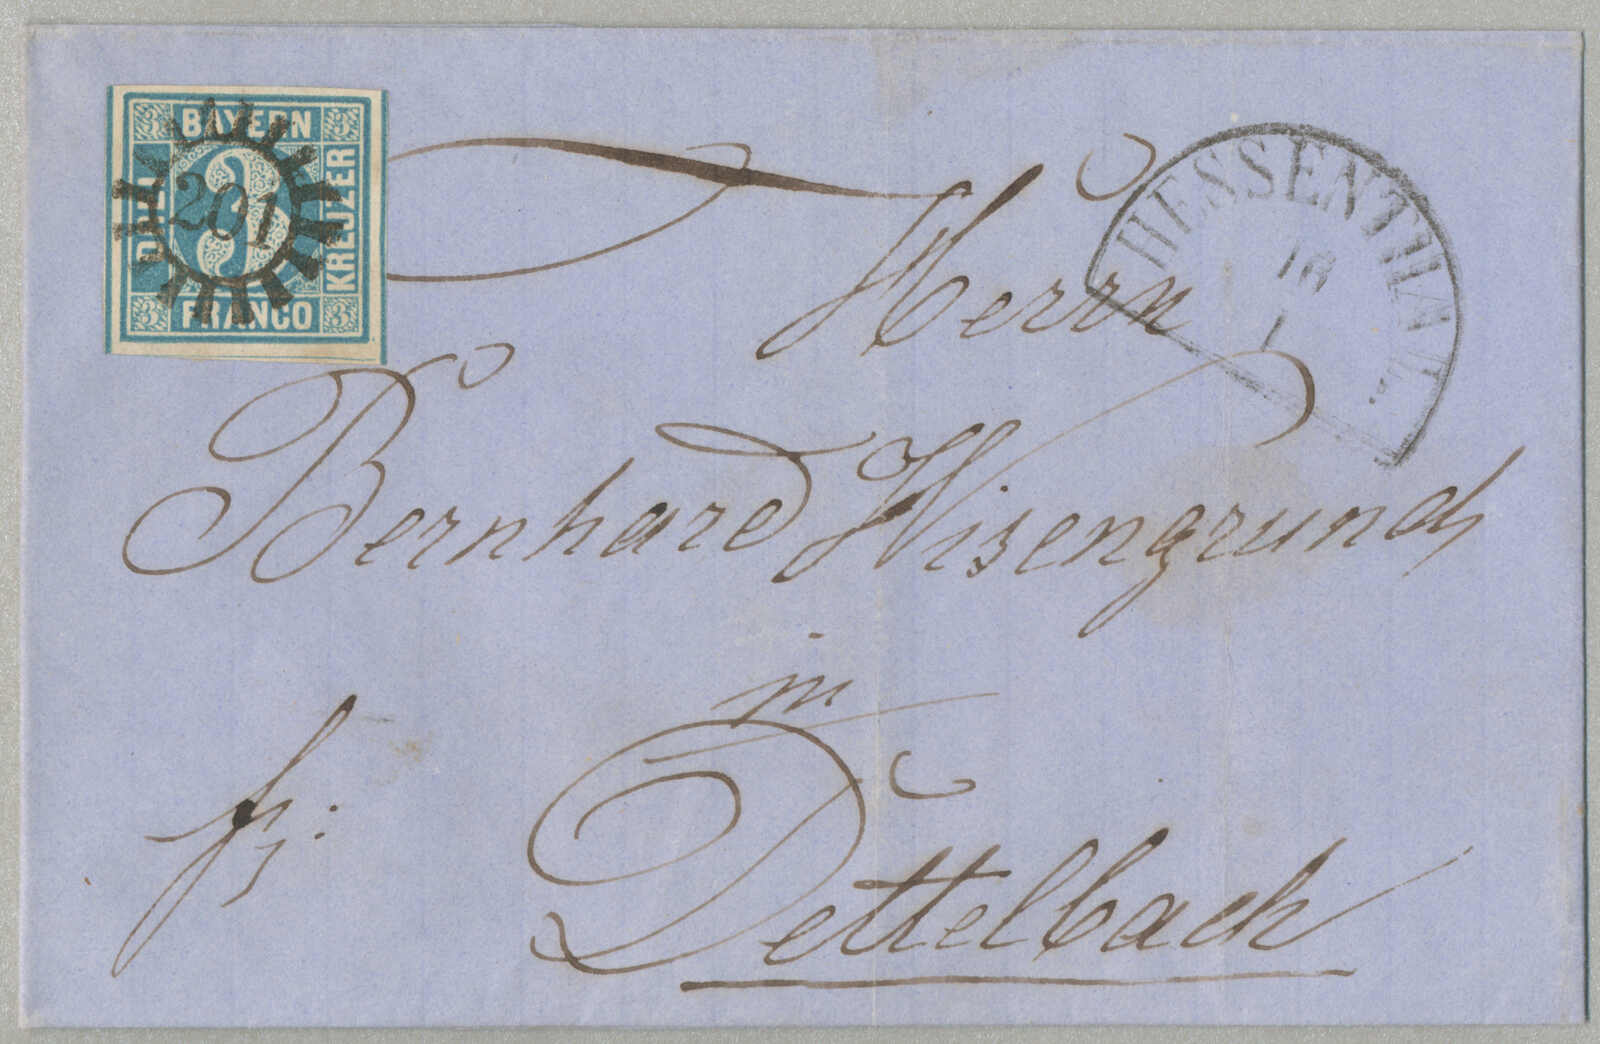 3 BAYERN 3
DREI
3
KREUZER
3 FRANCO 3
201
HESSENTHAL.
16
1
Herrn
Bernhard Wisengrund
in
Dettelbach
fr: